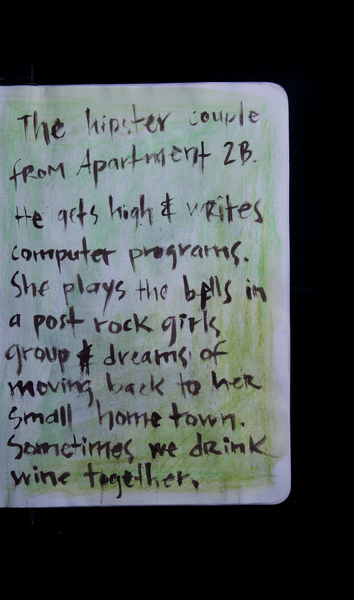 The hipster couple
from Apartment 2B.
He gets high & writes
computer programs.
She plays the bells in
a post rock girls
group & dreams of
moving back to her
small home town.
Sometimes we drink
wine together.